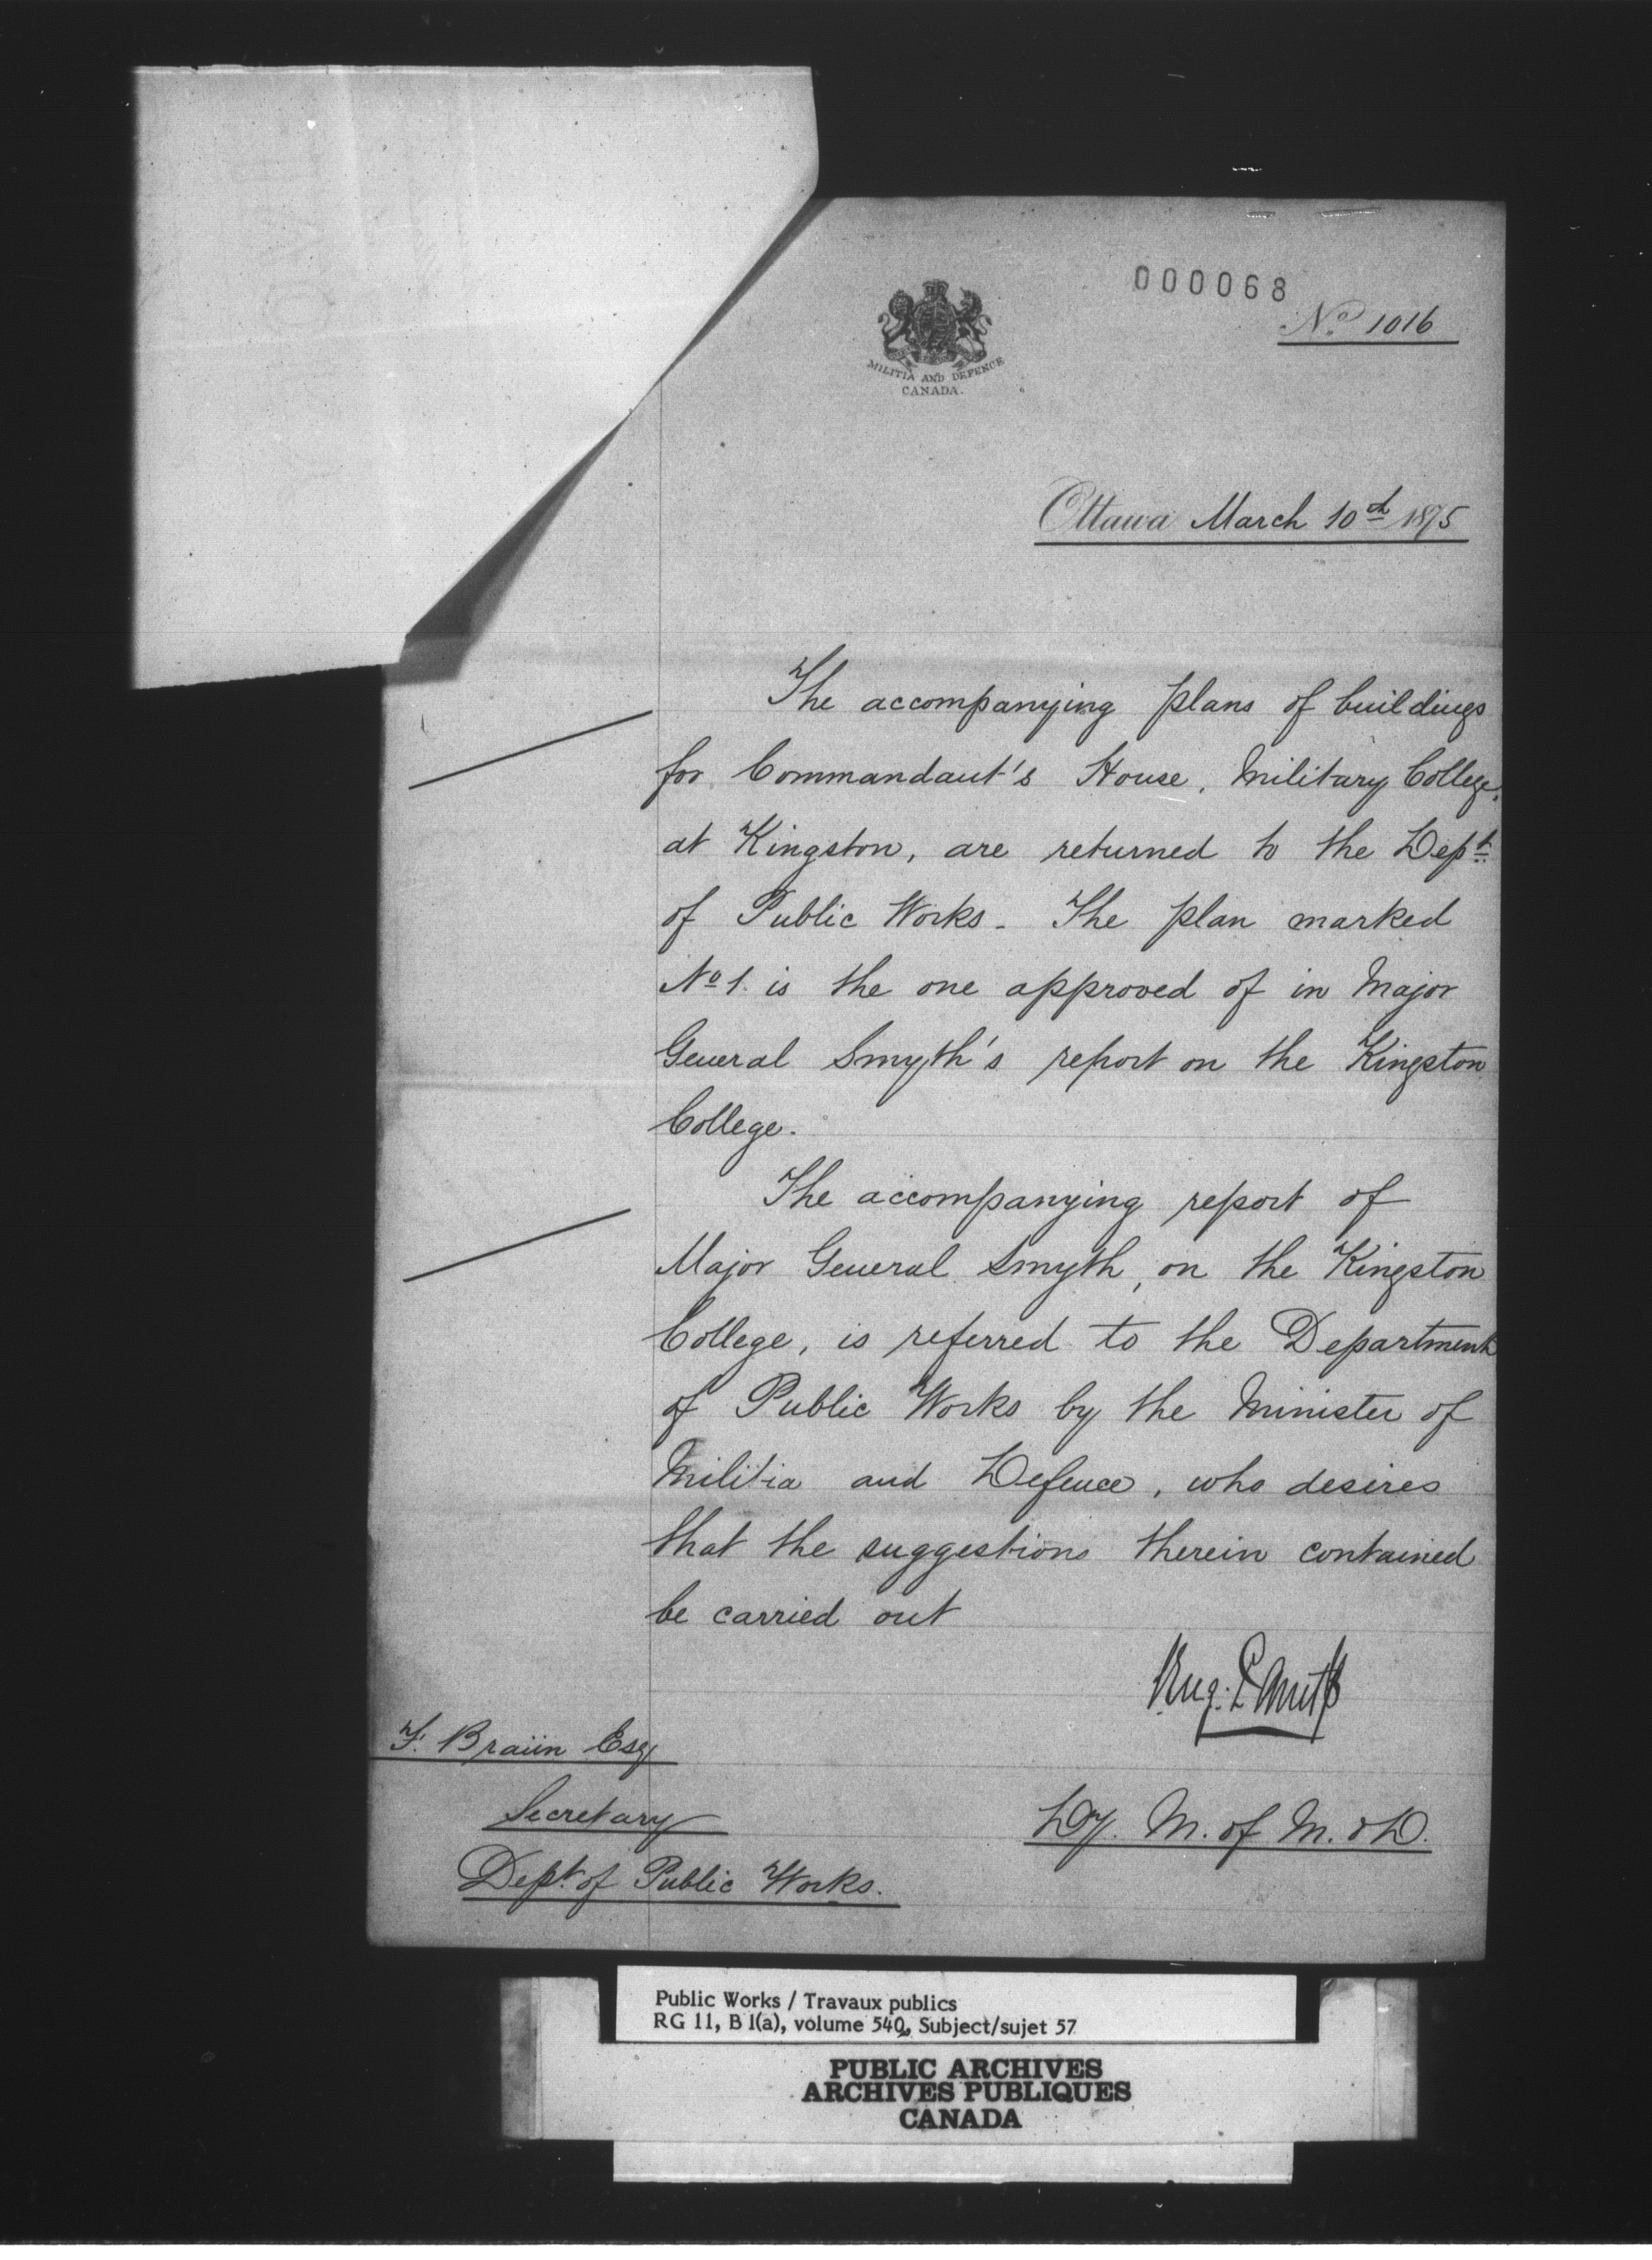 000068
No 1016
MILITIA AND DEFENCE
CANADA.
Ottawa March 10th 1875
The accompanying plans of buildings
for Commandant's House, Military College,
at Kingston, are returned to the Dept.
of Public Works - The plan marked
No 1. is the one approved of in Major
General Smyth's report on the Kingston
College.
The accompanying report of
Major General Smyth, on the Kingston
College, is referred to the Department
of Public Works by the Minister of
Militia and Defence, who desires
that the suggestions therein contained
be carried out
F. Braün Esq
Secretary
Dept. of Public Works.
Dy. M. of M. & D.
Public Works / Travaux publics
RG 11, B 1(a), volume 540, Subject/sujet 57
PUBLIC ARCHIVES
ARCHIVES PUBLIQUES
CANADA